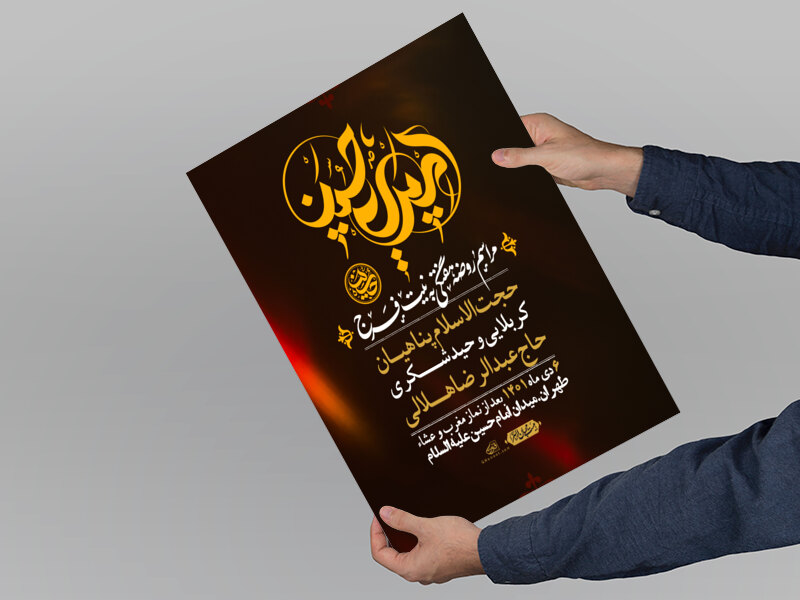 مراسم روضه هفتگی به نیت فرج
حجت الاسلام پناهیان
کربلایی وحید شکری
حاج عبدالرضا هلالی
۶ دی ماه ۱۴۰۱ بعد از نماز مغرب و عشاء
طهران، میدان امام حسین علیه السلام